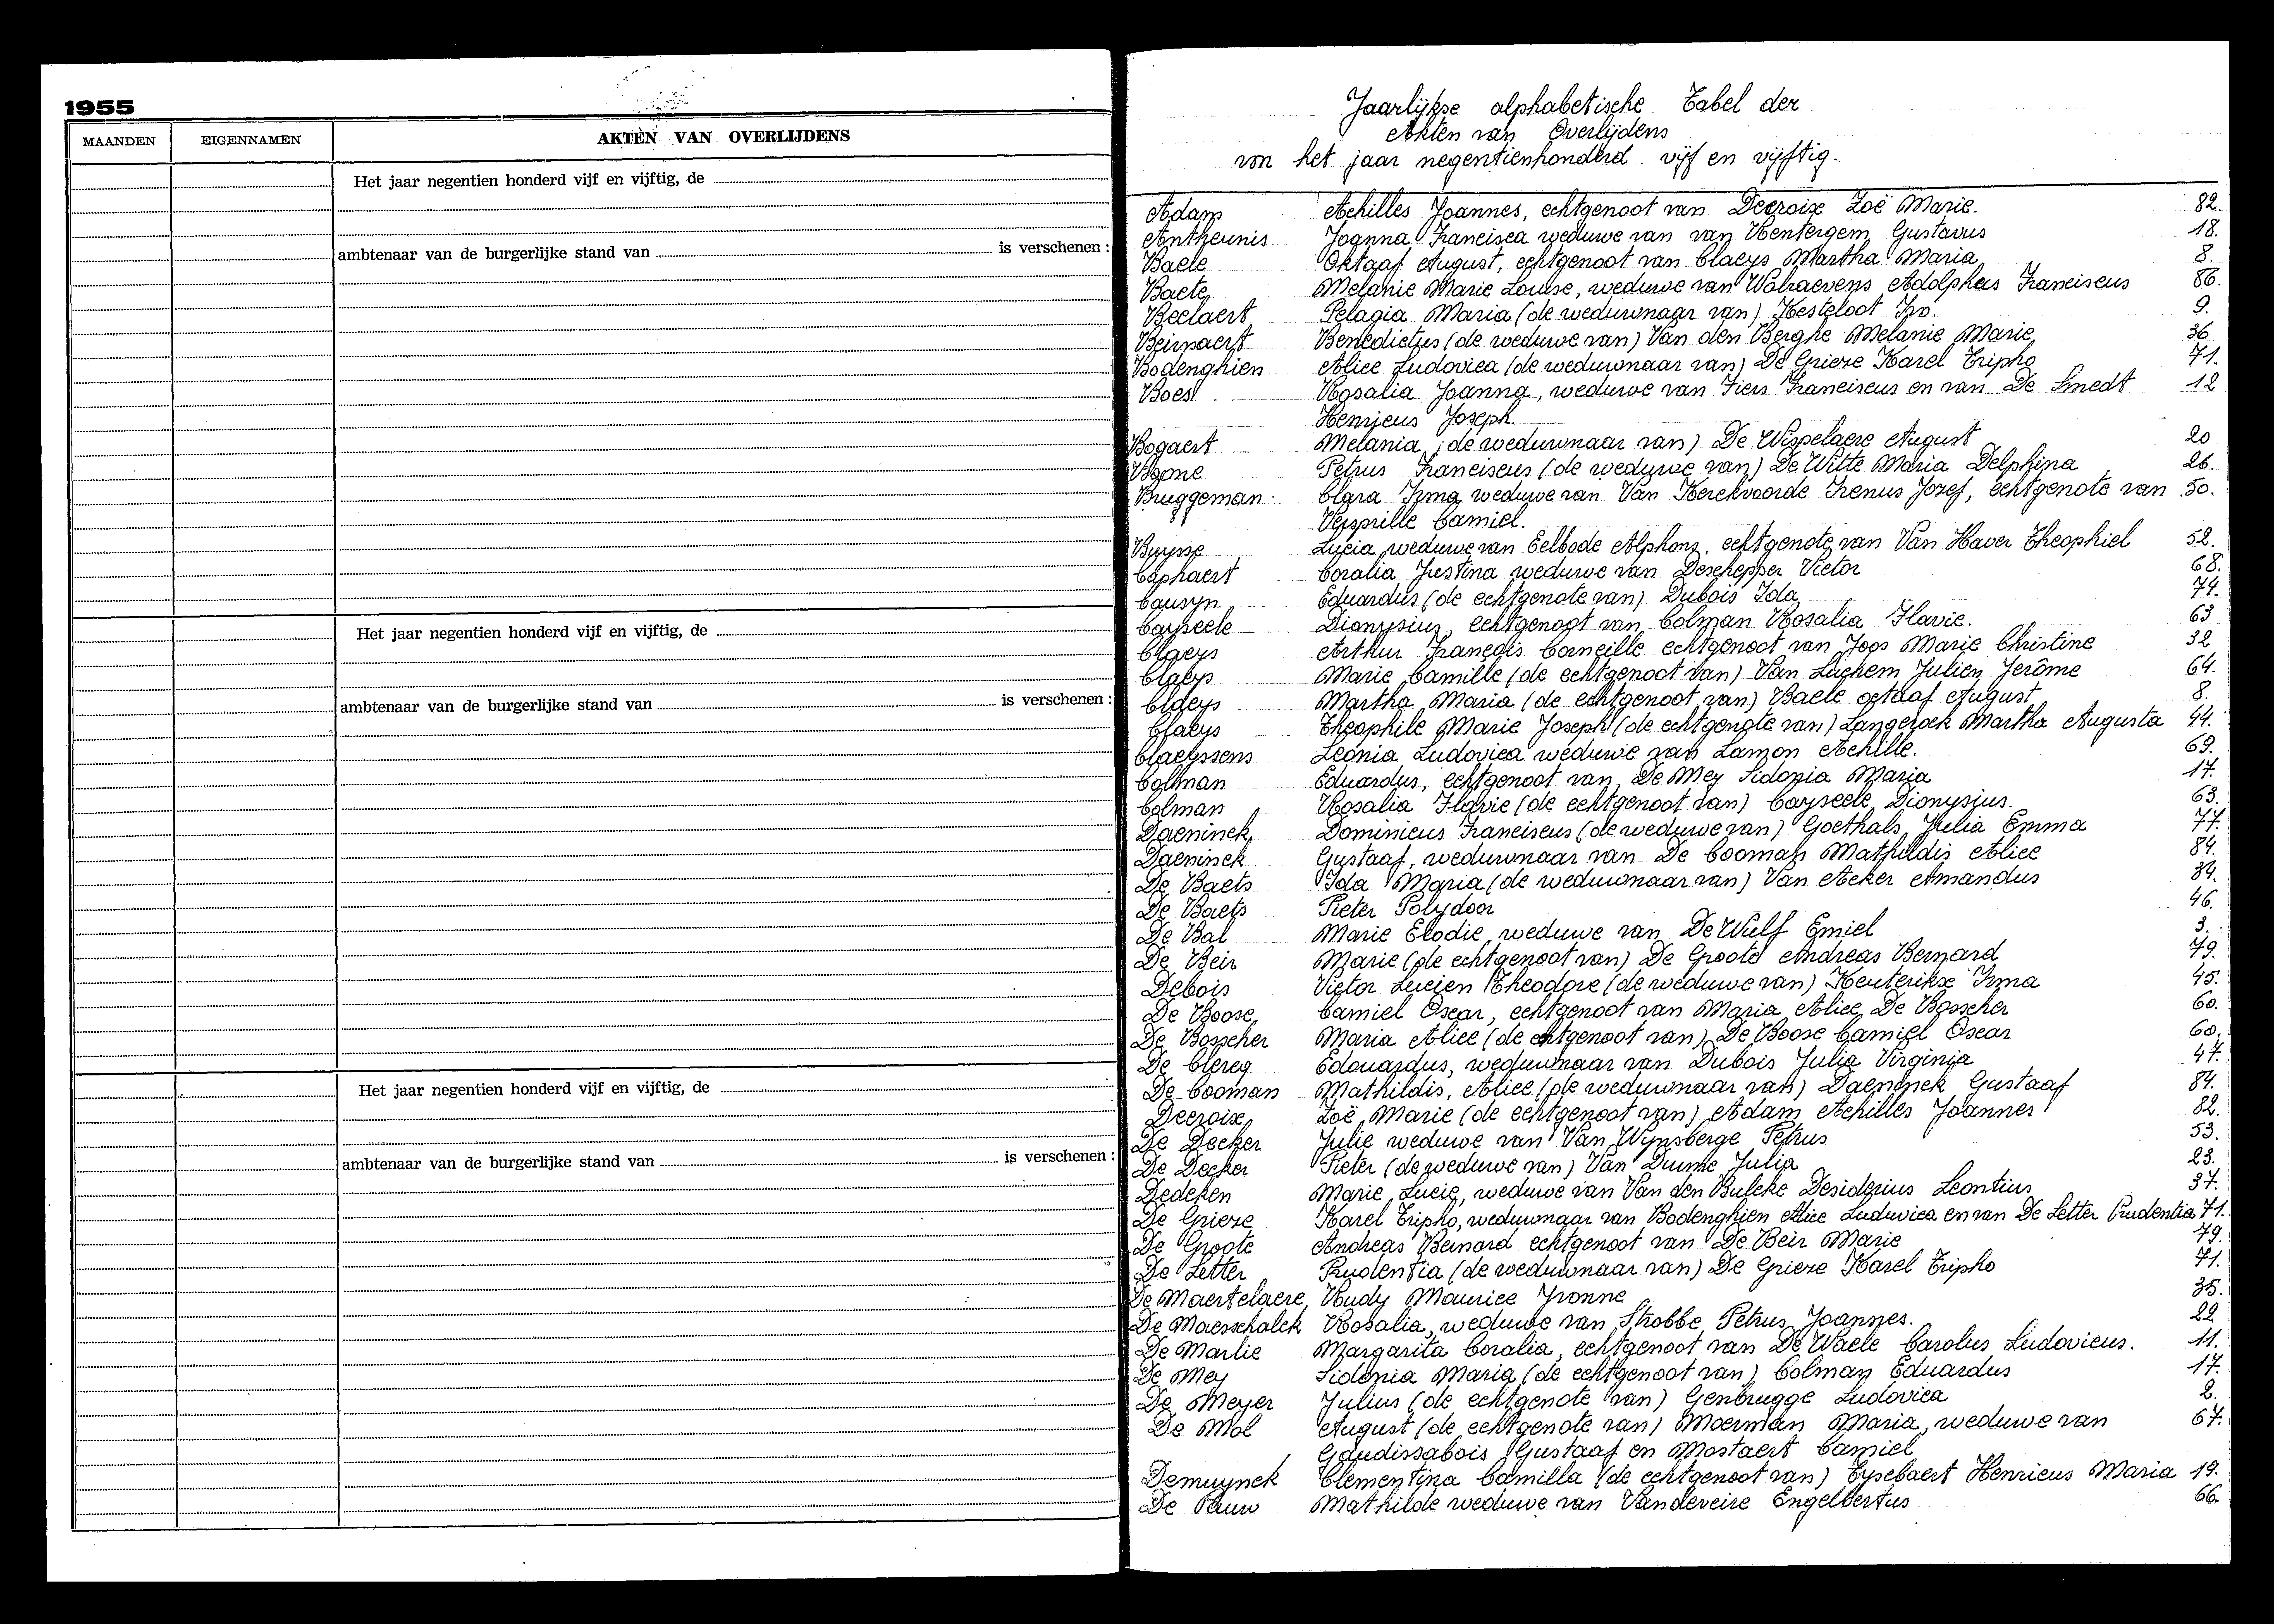 1955
MAANDEN EIGENNAMEN AKTEN VAN OVERLIJDENS
Het jaar negentien honderd vijf en vijftig, de
ambtenaar van de burgerlijke stand van is verschenen :
Het jaar negentien honderd vijf en vijftig, de
ambtenaar van de burgerlijke stand van is verschenen :
Het jaar negentien honderd vijf en vijftig, de
ambtenaar van de burgerlijke stand van is verschenen :
Jaarlijkse alphabetische Tabel der
Akten van Overlijdens
van het jaar negentienhonderd vijf en vijftig.
Adam Achilles Joannes, echtgenoot van Decroix Zoë Marie. 82.
Antheunis Joanna Francisca weduwe van van Hentergem Gustavus 18.
Baele Oktaaf August, echtgenoot van Claeys Martha Maria 8.
Baete Melanie Marie Louise, weduwe van Walraevens Adolpheus Franciscus 86.
Beelaert Pelagia Maria (de weduwnaar van) Kesteloot Ivo. 9.
Beirnaert Benedictus (de weduwe van) Van den Berghe Melanie Marie 36
Bodenghien Alice Ludovica (de weduwnaar van) De Grieze Karel Tripho 71.
Boes Rosalia Joanna, weduwe van Fiers Franciscus en van De Smedt 12
Henricus Joseph.
Bogaert Melania (de weduwnaar van) De Wispelaere August 20
Boone Petrus Franciscus (de weduwe van) De Witte Maria Delphina 26.
Bruggeman Clara Irma weduwe van Van Kerckvoorde Irenus Jozef, echtgenote van 50.
Versprille Camiel.
Buysse Lucia weduwe van Eelbode Alphons, echtgenote van Van Haver Theophiel 52.
Caphaert Coralia Justina weduwe van Deschepper Victor 68.
Causyn Eduardus (de echtgenote van) Dubois Ida 74.
Cayseele Dionysius, echtgenoot van Colman Rosalia Flavie. 63
Claeys Arthur François Corneille echtgenoot van Joos Marie Christine 32
Claeys Marie Camille (de echtgenoot van) Van Luchem Julien Jerôme 64.
Claeys Martha Maria (de echtgenoot van) Baele octaaf August 8.
Claeys Theophile Marie Joseph (de echtgenote van) Langeraek Martha Augusta 44.
Claeyssens Leonia Ludovica weduwe van Lamon Achille. 69.
Colman Eduardus, echtgenoot van De Mey Sidonia Maria 17.
Colman Rosalia Flavie (de echtgenoot van) Cayseele Dionysius. 63.
Daeninck Dominicus Franciscus (de weduwe van) Goethals Julia Emma 77.
Daeninck Gustaaf, weduwnaar van De Cooman Mathildis Alice 84.
De Baets Ida Maria (de weduwnaar van) Van Acker Amandus 34.
De Baets Pieter Polydoor 46.
De Bal Marie Elodie weduwe van De Wulf Emiel 3.
De Beir Marie (de echtgenoot van) De Groote Andreas Bernard 79.
Debois Victor Lucien Theodore (de weduwe van) Keuterickx Irma 45.
De Boose Camiel Oscar, echtgenoot van Maria Alice De Bosscher 60.
De Bosscher Maria Alice (de echtgenoot van) De Boose Camiel Oscar 60.
De Clercq Edouardus, weduwnaar van Dubois Julia Virginia 47.
De Cooman Mathildis, Alice (de weduwnaar van) Daeninck Gustaaf 84.
Decroix Zoë Marie (de echtgenoot van) Adam Achilles Joannes 82.
De Decker Julie weduwe van Van Wynsberge Petrus 53.
De Decker Pieter (de weduwe van) Van Durme Julia 23.
Dedeken Marie Lucie, weduwe van Van den Bulcke Desiderius Leontius 37.
De Grieze Karel Tripho, weduwnaar van Bodenghien Alice Ludovica en van De Letter Prudentia 71.
De Groote Andreas Bernard echtgenoot van De Beir Marie 79.
De Letter Prudentia (de weduwnaar van) De Grieze Karel Tripho 71.
De Maertelaere Rudy Maurice Yvonne 35.
De Maesschalck Rosalia, weduwe van Strobbe Petrus Joannes. 22
De Marlie Margarita Coralia, echtgenoot van De Waele Carolus Ludovicus. 11.
De Mey Sidonia Maria (de echtgenoot van) Colman Eduardus 17.
De Meyer Julius (de echtgenote van) Genbrugge Ludovica 2.
De Mol August (de echtgenote van) Moerman Maria, weduwe van 67.
Gaudissabois Gustaaf en Mostaert Camiel
Demuynck Clementina Camilla (de echtgenoot van) Eysebaert Henricus Maria 19.
De Pauw Mathilde weduwe van Vandeveire Engelbertus 66.